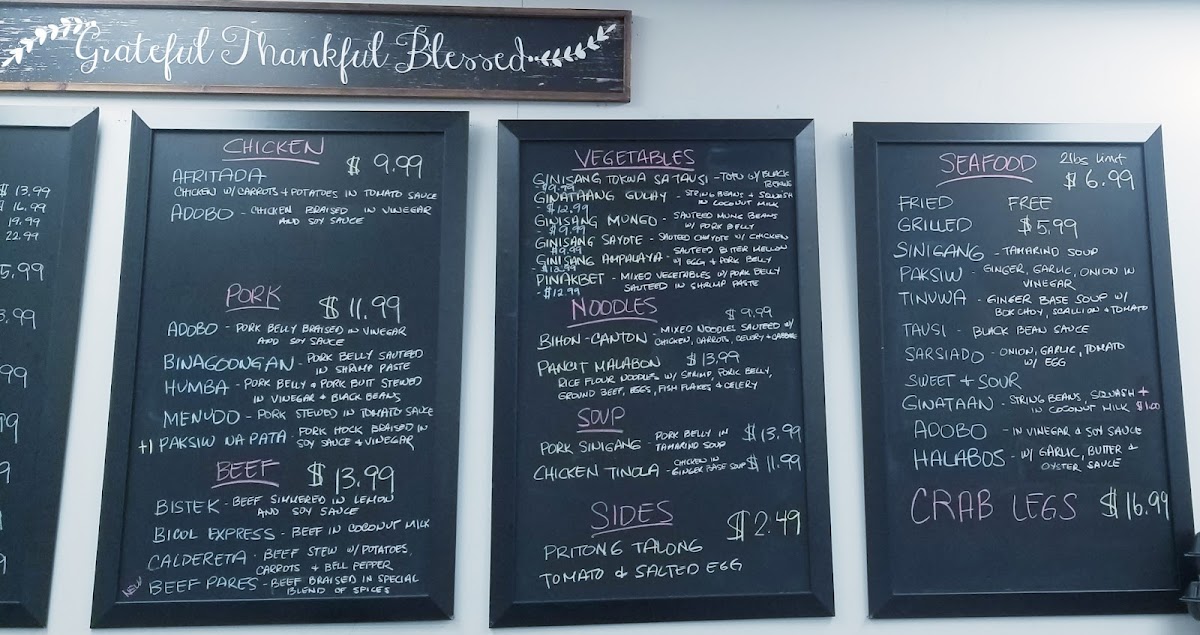 Grateful Thankful Blessed
$ 13.99
$ 16.99
19.99
22.99
5.99
3.99
99
99
CHICKEN
$ 9.99
AFRITADA
CHICKEN W/ CARROTS + POTATOES IN TOMATO SAUCE
ADOBO - CHICKEN BRAISED IN VINEGAR
AND SOY SAUCE
PORK
$ 11.99
ADOBO - PORK BELLY BRAISED IN VINEGAR
AND SOY SAUCE
BINAGOONGAN - PORK BELLY SAUTEED
IN SHRIMP PASTE
HUMBA - PORK BELLY & PORK BUTT STEWED
IN VINEGAR & BLACK BEANS
MENUDO - PORK STEWED IN TOMATO SAUCE
+1 PAKSIW NA PATA - PORK HOCK BRAISED IN
SOY SAUCE & VINEGAR
BEEF
$ 13.99
BISTEK - BEEF SIMMERED IN LEMON
AND SOY SAUCE
BICOL EXPRESS - BEEF IN COCONUT MILK
CALDERETA - BEEF STEW W/ POTATOES,
CARROTS + BELL PEPPER
NEW BEEF PARES - BEEF BRAISED IN SPECIAL
BLEND OF SPICES
VEGETABLES
GINISANG TOKWA SA TAUSI - TOFU W/ BLACK
BEANS
- $9.99
GINATAANG GULAY - STRING BEANS & SQUASH
IN COCONUT MILK
- $12.99
GINISANG MUNGO - SAUTEED MUNG BEANS
W/ PORK BELLY
- $9.99
GINISANG SAYOTE - SAUTEED CHAYOTE W/ CHICKEN
$9.99
GINISANG AMPALAYA - SAUTEED BITTER MELLON
W/ EGG & PORK BELLY
- $12.99
PINAKBET - MIXED VEGETABLES W/ PORK BELLY
SAUTEED IN SHRIMP PASTE
- $12.99
NOODLES
$ 9.99
BIHON-CANTON - MIXED NOODLES SAUTEED W/
CHICKEN, CARROTS, CELERY & CABBAGE
PANCIT MALABON $ 13.99
RICE FLOUR NOODLES W/ SHRIMP, PORK BELLY,
GROUND BEEF, EGGS, FISH FLAKES & CELERY
SOUP
PORK SINIGANG - PORK BELLY IN
TAMARIND SOUP
$ 13.99
CHICKEN TINOLA - CHICKEN IN
GINGER BASE SOUP
$ 11.99
SIDES
$ 2.49
PRITONG TALONG
TOMATO & SALTED EGG
SEAFOOD
2lbs limit
$ 6.99
FRIED FREE
GRILLED $ 5.99
SINIGANG - TAMARIND SOUP
PAKSIW - GINGER, GARLIC, ONION IN
VINEGAR
TINUWA - GINGER BASE SOUP W/
BOK CHOY, SCALLION & TOMATO
TAUSI - BLACK BEAN SAUCE
SARSIADO - ONION, GARLIC, TOMATO
W/ EGG
SWEET & SOUR
GINATAAN - STRING BEANS, SQUASH +
IN COCONUT MILK $1.00
ADOBO - IN VINEGAR & SOY SAUCE
HALABOS - W/ GARLIC, BUTTER &
OYSTER SAUCE
CRAB LEGS $16.99